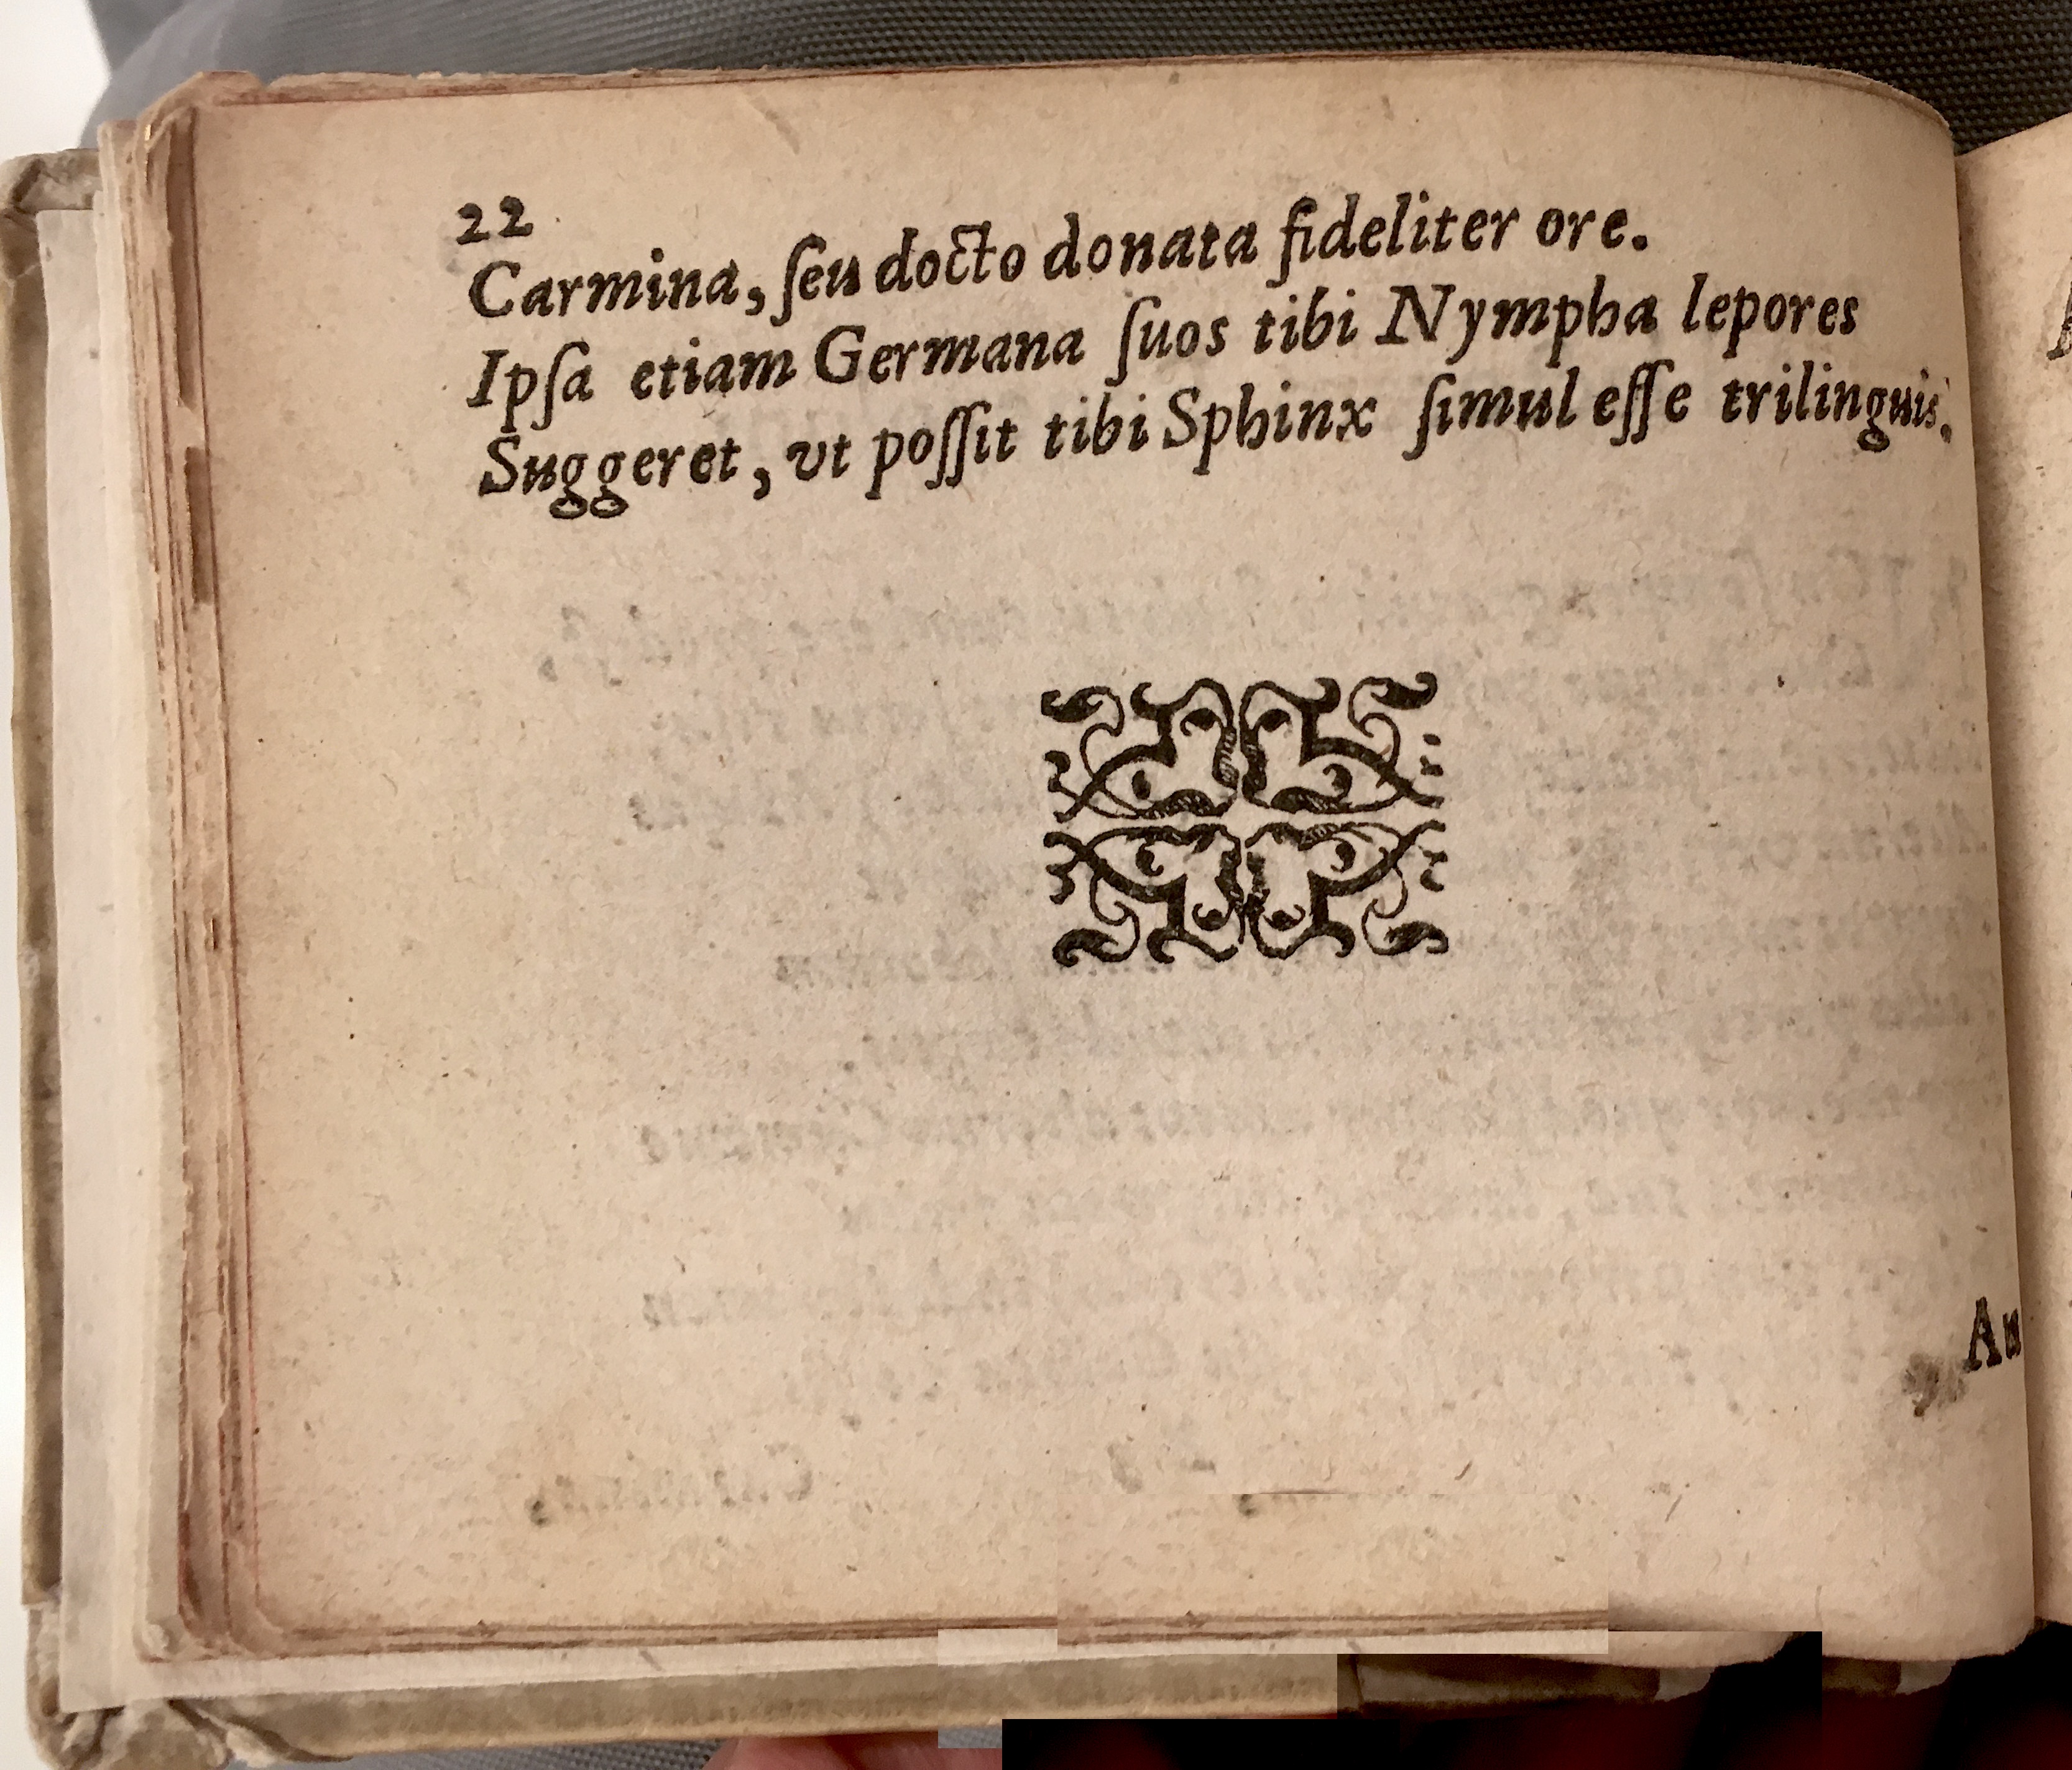 22
Carmina, ſeu docto donata fideliter ore.
Ipſa etiam Germana ſuos tibi Nympha lepores
Suggeret, vt poſſit tibi Sphinx ſimul eſſe trilinguis.
Au